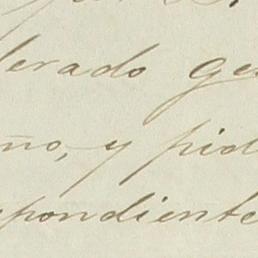 lerado ge
no, y pid
spondiente